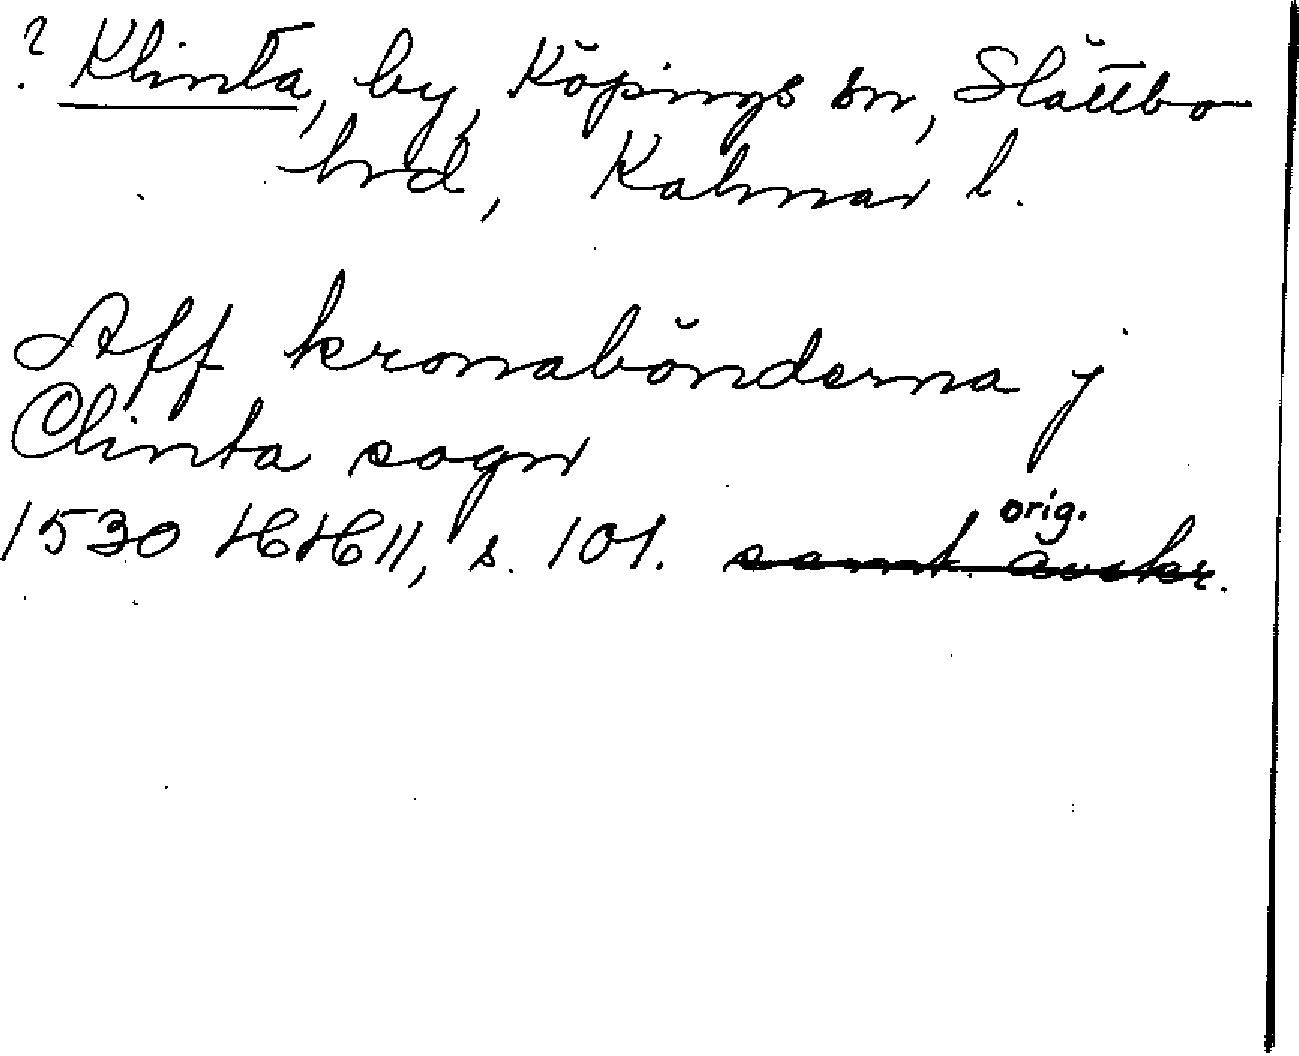 ? Klinta, by, Köpings sn, Slättbo
hrd, Kalmar l.
Aff kronabönderna j
Clinta sogn
orig.
1530 HH 11, s. 101. samt. avskr.